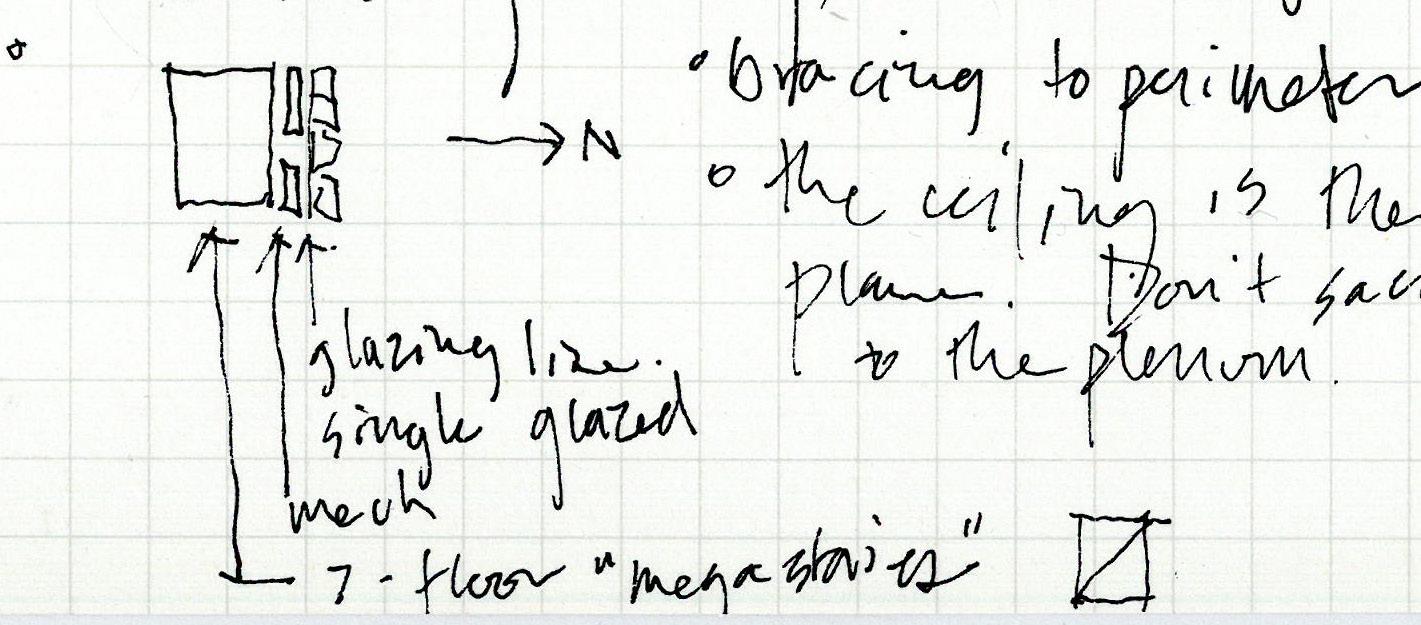 N
glazing line.
single glazed
mech
7-floor "mega stairs"
• bracing to perimeter
• the ceiling is the
plane. Don't sac
to the plenum.